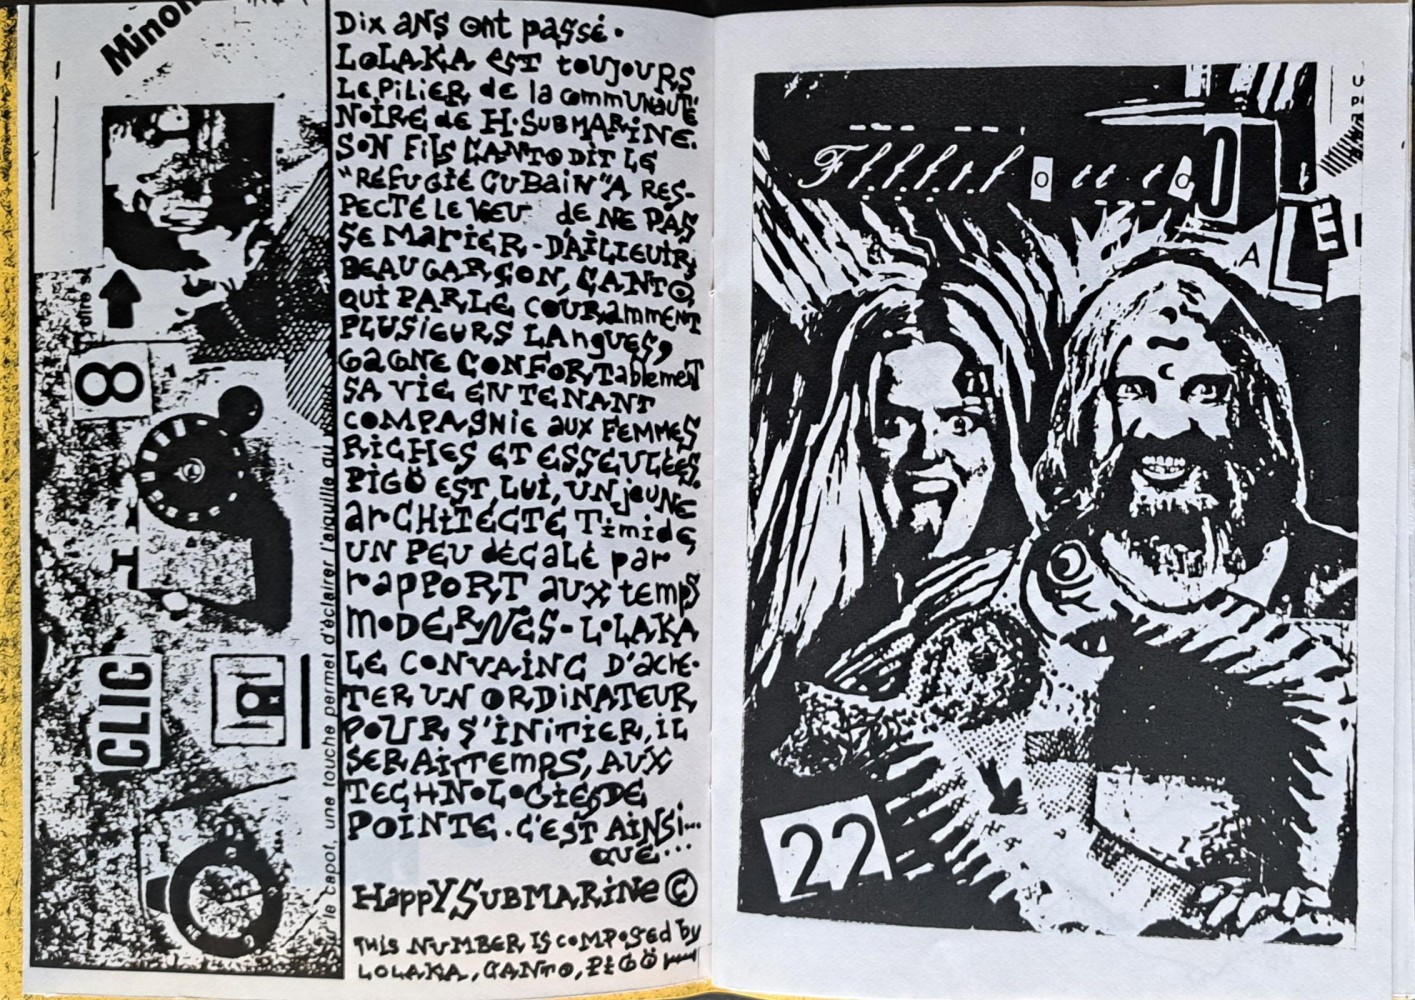 Minol
dire s
8
CLIC
le capot, une touche permet d'éclairer l'aiguille du
Dix ans ont passé.
LOLAKA EST toujours
LE PiLiER de la communauté
NOIRE de H. SUBMARINE.
SON FiLS CANTO DIT LE
"RÉFUGIÉ CUBAIN" A RES-
PECTÉ LE VŒU de NE PAS
SE MARIER - D'AILLEURS
BEAU GARÇON, CANTO,
QUI PARLE COURamment
PLUSIEURS LAngues,
GAGNE CONFORTablement
SA VIE EN TENANT
COMPAGNIE aux FEMMES
RICHES ET ESSEULÉES.
PIGÖ EST, LUI, UN jeune
arCHITECTE Timide
UN PEU décalé par
rapport aux temps
MODERNES - LOLAKA
LE CONVAINC D'ache-
TER UN ORDINATEUR
POUR S'INITIER, IL
SERAIT TEMPS, AUX
TECHNOLOGIES DE
POINTE. C'EST AINSI...
QUE...
HappY SUBMARINE ©
THIS NUMBER IS COMPOSED by
LOLAKA, CANTO, PIGÖ
F.f.f.f.t.f o tt. t a 0
A LE
22